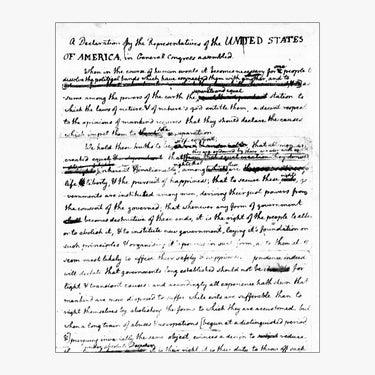 A Declaration by the Representatives of the UNITED STATES
OF AMERICA, in General Congress assembled.
When in the course of human events it becomes necessary for one people to
dissolve the political bands which have connected them with another, and to
assume among the powers of the earth the separate and equal station to
which the laws of nature & of nature's god entitle them, a decent respect
to the opinions of mankind requires that they should declare the causes
which impel them to the separation.
We hold these truths to be self-evident; that all men are
created equal
rights; that among these are
life, liberty, & the pursuit of happiness; that to secure these rights, go
vernments are instituted among men, deriving their just powers from
the consent of the governed; that whenever any form of government
becomes destructive of these ends, it is the right of the people to alter
or to abolish it, & to institute new government, laying it's foundation on
such principles & organising it's powers in such form, as to them shall
seem most likely to effect their safety & happiness. prudence indeed
will dictate that governments long established should not be changed for
light & transient causes: and accordingly all experience hath shewn that
mankind are more disposed to suffer while evils are sufferable, than to
right themselves by abolishing the forms to which they are accustomed. but
when a long train of abuses & usurpations [begun at a distinguished period
& pursuing invariably the same object, evinces a design to reduce
it is their right, it is their duty to throw off such